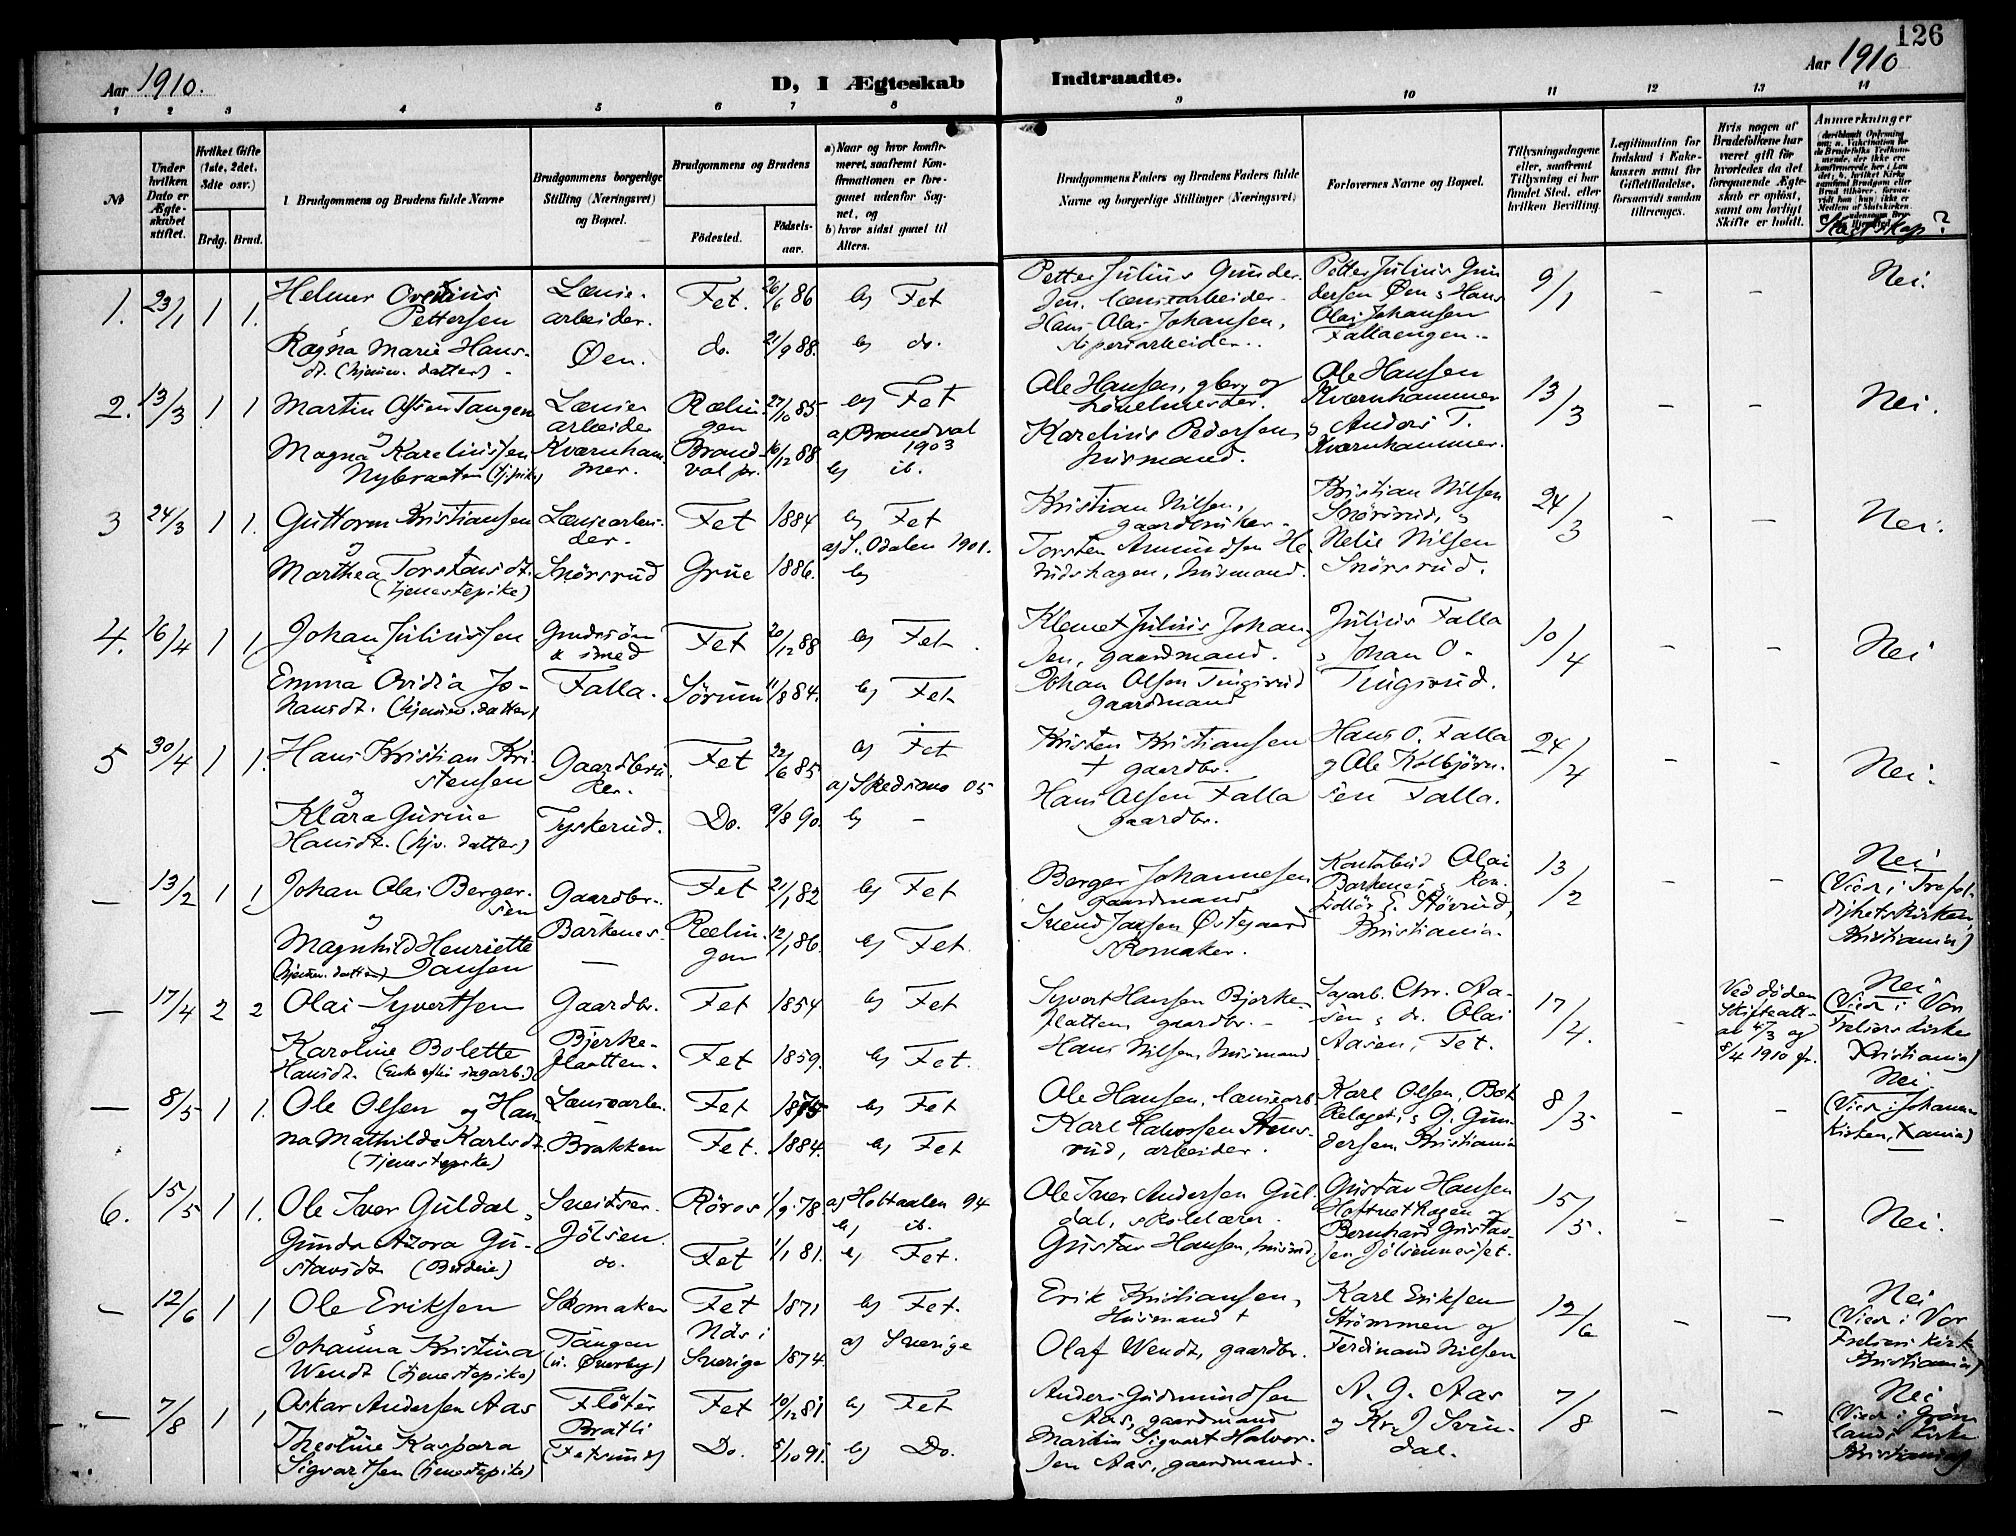 126
Aar 1910.
D, I Ægteskab
Indtraadte.
Aar 1910
1 2 3 4 5 6 7 8 9 10 11 12 13 14
No
Under hvilken Dato er Ægteskabet stiftet.
Hvilket Gifte (1ste, 2det, 3die osv.)
Brdg. Brud.
Brudgommens og Brudens fulde Navne
Brudgommens borgerlige Stilling (Næringsvei) og Bopæl.
Brudgommens og Brudens
Födested.
Födselsaar.
a) Naar og hvor konfirmeret, saafremt Konfirmationen er foregaaet udenfor Sognet, og
b) hvor sidst gaaet til Alters.
Brudgommens Faders og Brudens Faders fulde Navne og borgerlige Stillinger (Næringsvei)
Forlovernes Navne og Bopæl.
Tillysningsdagene eller, saafremt Tillysning ei har fundet Sted, efter hvilken Bevilling.
Legitimation for Indskud i Enkekassen samt for Giftetilladelse, forsaavidt saadan tiltrænges.
Hvis nogen af Brudefolkene har været gift för hvorledes da det foregaaende Ægteskab er oplöst, samt om lovligt Skifte er holdt.
Anmærkninger
Slegtskap?
1. 23/1 1 1. Helmer Ovedius Pettersen
Lænsearbeider.
Fet. 26/6 86 b) Fet
Petter Julius Gundersen, lænsearbeider.
Petter Julius Gundersen Øen & Hans Olai Johansen Fallaengen.
9/1 - - Nei.
Ragna Marie Hansdt. (hjemmev. datter)
Øen. do. 21/9 88. b) do.
Hans Olai Johansen,
2. 13/3 1 1 Martin Olsen Tangen
Lænsearbeider
Rælingen 27/10 85 b) Fet
Ole Hansen,
Ole Hansen Kværnhammer & Anders T. Kværnhammer.
13/3 - - Nei.
og Magna Karelinssen Nybraaten (tj.pike)
Kværnhammer. Brandval pr. 16/12 88 a) Brandval 1903 b) ib.
Karelius Pedersen, husmand.
3 24/3 1 1. Guttorm Kristiansen
Lænsearbeider.
Fet 1884 b) Fet
Kristian Nilsen, gaardbruker.
Kristian Nilsen Snörsrud, & Nelie Nilsen Snörsrud.
24/3 - - Nei.
og Marthea Torstensdt. (tjenestepike)
Snörsrud Grue 1886. a) S. Odalen 1901. b)
Torsten Amundsen Herudshagen, husmand.
4. 16/4 1 1 Johan Juliussen
Gaardsøn & smed
Fet 20/12 88 b) Fet.
Klemet Julius Johansen, gaardmand.
Julius Falla & Johan O. Tingsrud.
10/4 - - Nei
& Emma Ovidia Johansdt. (hjemmev. datter)
Falla. Sørum 11/8 84. b) Fet
Johan Olsen Tingsrud gaardmand
5 30/4 1 1. Hans Kristian Kristensen
Gaardbruker.
Fet 22/6 85 b) Fet
Kristen Kristiansen † gaardbr.
Hans O. Falla og Ole Kolbjörnsen Falla.
24/4 - - Nei.
og Klara Gurine Hansdt. (hjv. datter)
Tyskerud. Do. 9/8 90. a) Skedsmo 05 b) -
Hans Olsen Falla gaardbr.
- 13/2 1 1 Johan Olai Bergersen
Gaardbr.
Fet 21/1 82 b) Fet
Berger Johannesen gaardmand
Kontorbud Olai Barkenes & E. Støvrud, Kristiania.
13/2 - - Nei (Viet i Trefoldighetskirken Kristiania)
& Magnhild Henriette Jansen (hjemmev. datter)
Barkenes - Rælingen 12/1 86. b) Fet.
Svend Jansen Østegaard skomaker.
- 17/4 2 2 Olai Syvertsen
Gaardbr. Fet 1854 b) Fet
Syvert Hansen Bjerkeflatten, gaardbr.
Sagarb. Chr. Aasen & do. Olai Aasen, Fet.
17/4. - Ved døden Skifteatt. av 4/3 og 8/4 1910 fr.
Nei (Viet i Vor Frelsers kirke Kristiania)
& Karoline Bolette Hansdt. (Enke efter sagarb.)
Bjerkeflaatten. Fet 1859. b) Fet.
Hans Nilsen, husmand
- 8/5 1 1. Ole Olsen og Hanna Mathilde Karlsdt. (Tjenestepike)
Lænsearbei. Brakken
Fet b) Fet
Fet. 1884. b) Fet
Ole Hansen, lænsearb
Karl Halvorsen Stensrud, arbeider.
Karl Olsen, & G. Gundersen, Kristiania
8/5 - - Nei (Viet i Johanneskirken, Xania)
6. 15/5 1 1. Ole Iver Guldal &
Sveitser. Röros 1/9 78. a) Holtaalen 94 b) ib.
Ole Iver Andersen Guldal, skolelærer.
Gustav Hansen og Bernhard Gustavsen Jölsenneset.
15/5. - - Nei.
Gunda Azora Gustavsdt. (Budeie)
Jölsen. do. Fet 1/1 81. b) Fet.
Gustav Hansen, husmd.
- 12/6 1 1 Ole Eriksen
Skomaker Fet 1871 b) Fet.
Erik Kristiansen, Husmand †
Karl Eriksen Strömmen og Ferdinand Nilsen
12/6 - - Nei (Viet i Vor Frelsers kirke Kristiania)
& Johanna Kristina Wendt (tjenestepike)
Tangen (u. Øverby) Näs i Sverige 1874. a) Sverige
Olaf Wendt, gaardbr.
- 7/8 1 1 Oskar Andersen Aas
Flöter Fet 10/12 81 b) Fet
Anders Gudmundsen Aas, gaardmand
A. G. Aas og Kr. J Svindal.
7/8 - - Nei (Viet i Grønlands kirke Kristiania)
& Theoline Kaspara Sigvartsen (tjenestepike)
Bratli (Fetsund) Do. 5/10 91. b) Do.
Martin Sigvart Halvorsen Aas, gaardmand.